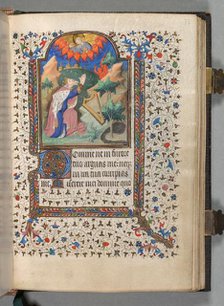 Domine ne in furore
tuo arguas me: neq
in ira tua corripias
me. iserere mei domine quo